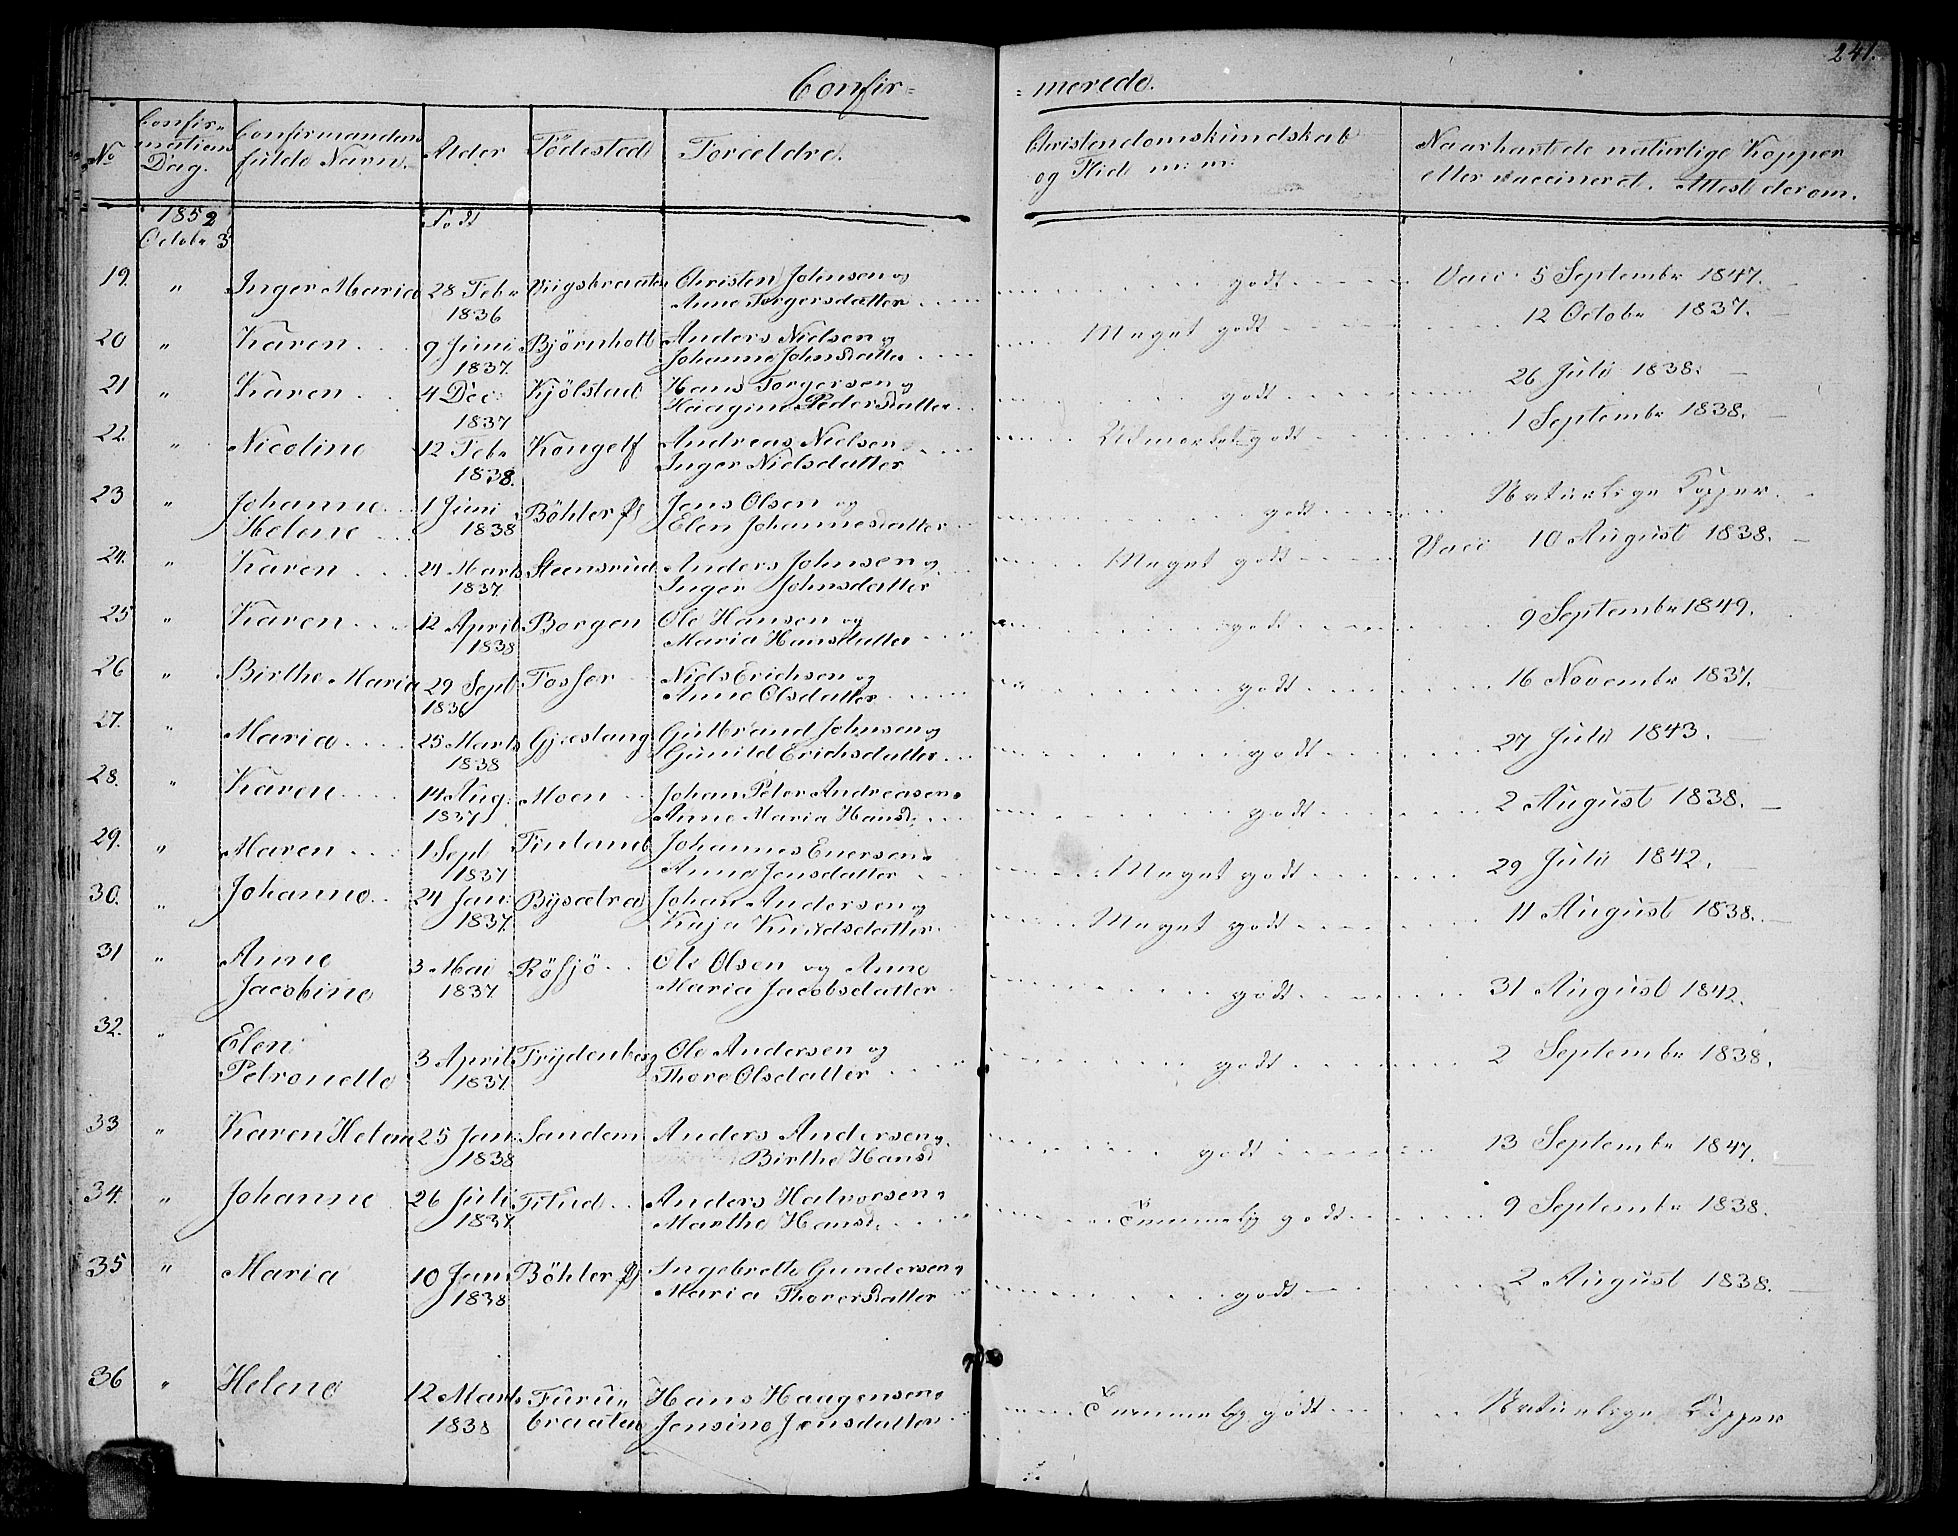 241.
Confir=
=merede.
No
Confir=
mations
Dag.
Confirmandens
fulde Navn.
Alder
Födested
Forældre.
Christendomskundskab
og Flid m: m:
Naar havt de naturlige Kopper
eller vaccineret. Attest derom.
1852
Octobr 3
Födt
19. " Inger Maria 28 Febr Christen Johnsen og godt Vacc. 5 Septembr 1847.
1836 Anne Torgersdatter
20 " Karen 9 Juni Björnholt Anders Nielsen og Meget godt 12 Octobr 1837.
1837. Johanne Johnsdatter
21 " Karen 4 Dec: Kjölstad Hans Torgersen og godt 26 Juli 1838.
1837 Haagine Pedersdatter
22. " Nicoline 12 Febr Kongelf Andreas Nielsen Udmærket godt 1 Septembr 1838.
1838. Inger Nielsdatter
23 " Johanne 1 Juni Böhler Jens Olsen og godt Naturlige Kopper.
Helene 1838 Elen Johannesdatter
24. " Karen 24 Marts Steensrud Anders Johnsen og Meget godt Vacc 10 August 1838.
1837. Inger Johnsdatter
25 " Karen 12 April Borgen Ole Hansen og godt 9 Septembr 1849.
1838 Maria Hansdatter
26 " Birthe Maria 29 Sept Fosser Niels Erichsen og godt 16 Novembr 1837.
1836 Anne Olsdatter
27. " Maria 25 Marts Gjæstang Gulbrand Johnsen og godt 27 Juli 1843.
1838 Gunild Erichsdatter
28. " Karen 14 Aug: Moen Johan Peter Andreasen godt 2 August 1838.
1837 Anne Maria Hansd:
29. " Maren 1 Sept Finland Johannes Enersen Meget godt 29 Juli 1842.
1837 Anne Jensdatter
30. " Johanne 24 Jan: Bysætra Johan Andersen og Meget godt 11 August 1838.
1837. Kaja Knudsdatter
31 " Anne 3 Mai Rösjö Ole Olsen og Anne godt 31 August 1842.
Jacobine 1837 Maria Jacobsdatter
32. " Elen 3 April Frydenberg Ole Andersen og godt 2 Septembr 1838.
Petronelle 1837. Thore Olsdatter
33 " Karen Helene 25 Jan: Sandem Anders Andersen og godt 13 Septembr 1847.
1838 Birthe Hansd
34. " Johanne 26 Juli Anders Halvorsen Temmelig godt 9 Septembr 1838.
1837 Marthe Hansd:
35 " Maria 10 Juni Böhler Ingebreth Gundersen godt 2 August 1838.
1838 Maria Thorersdatter
36 " Helene 12 Marts Furu= Hans Haagensen Temmelig godt Naturlige Kopper
1838 braaten Jensine Jensdatter